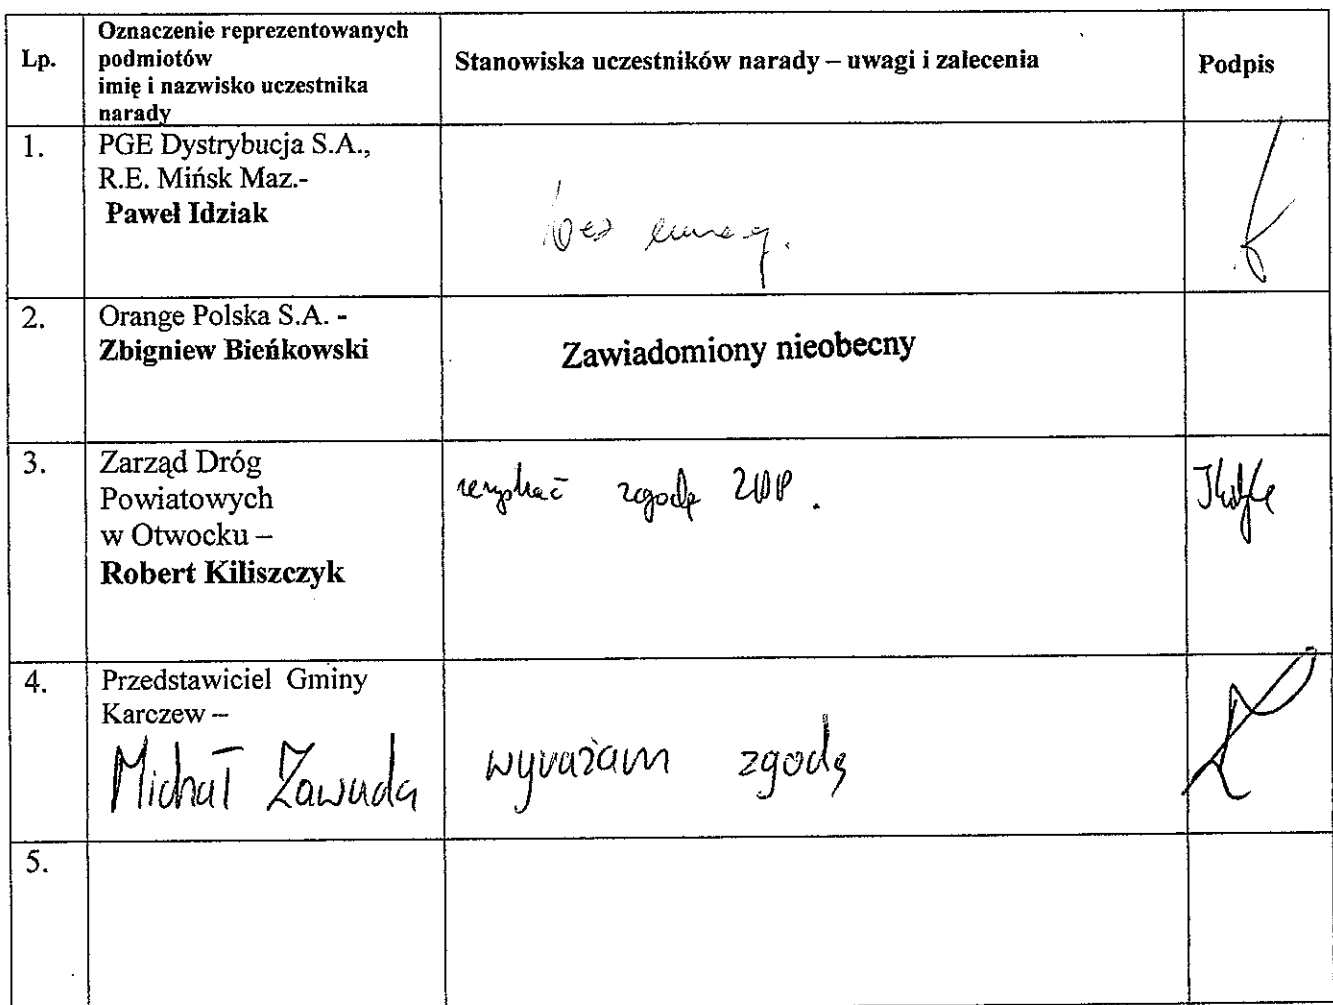 Lp.
Oznaczenie reprezentowanych
podmiotów
imię i nazwisko uczestnika
narady
Stanowiska uczestników narady – uwagi i zalecenia
Podpis
1.
PGE Dystrybucja S.A.,
R.E. Mińsk Maz.-
Paweł Idziak
bez uwag.
2.
Orange Polska S.A. -
Zbigniew Bieńkowski
Zawiadomiony nieobecny
3.
Zarząd Dróg
Powiatowych
w Otwocku –
Robert Kiliszczyk
uzyskać zgodę ZDP.
4.
Przedstawiciel Gminy
Karczew –
Michał Zawada
wyrażam zgodę
5.